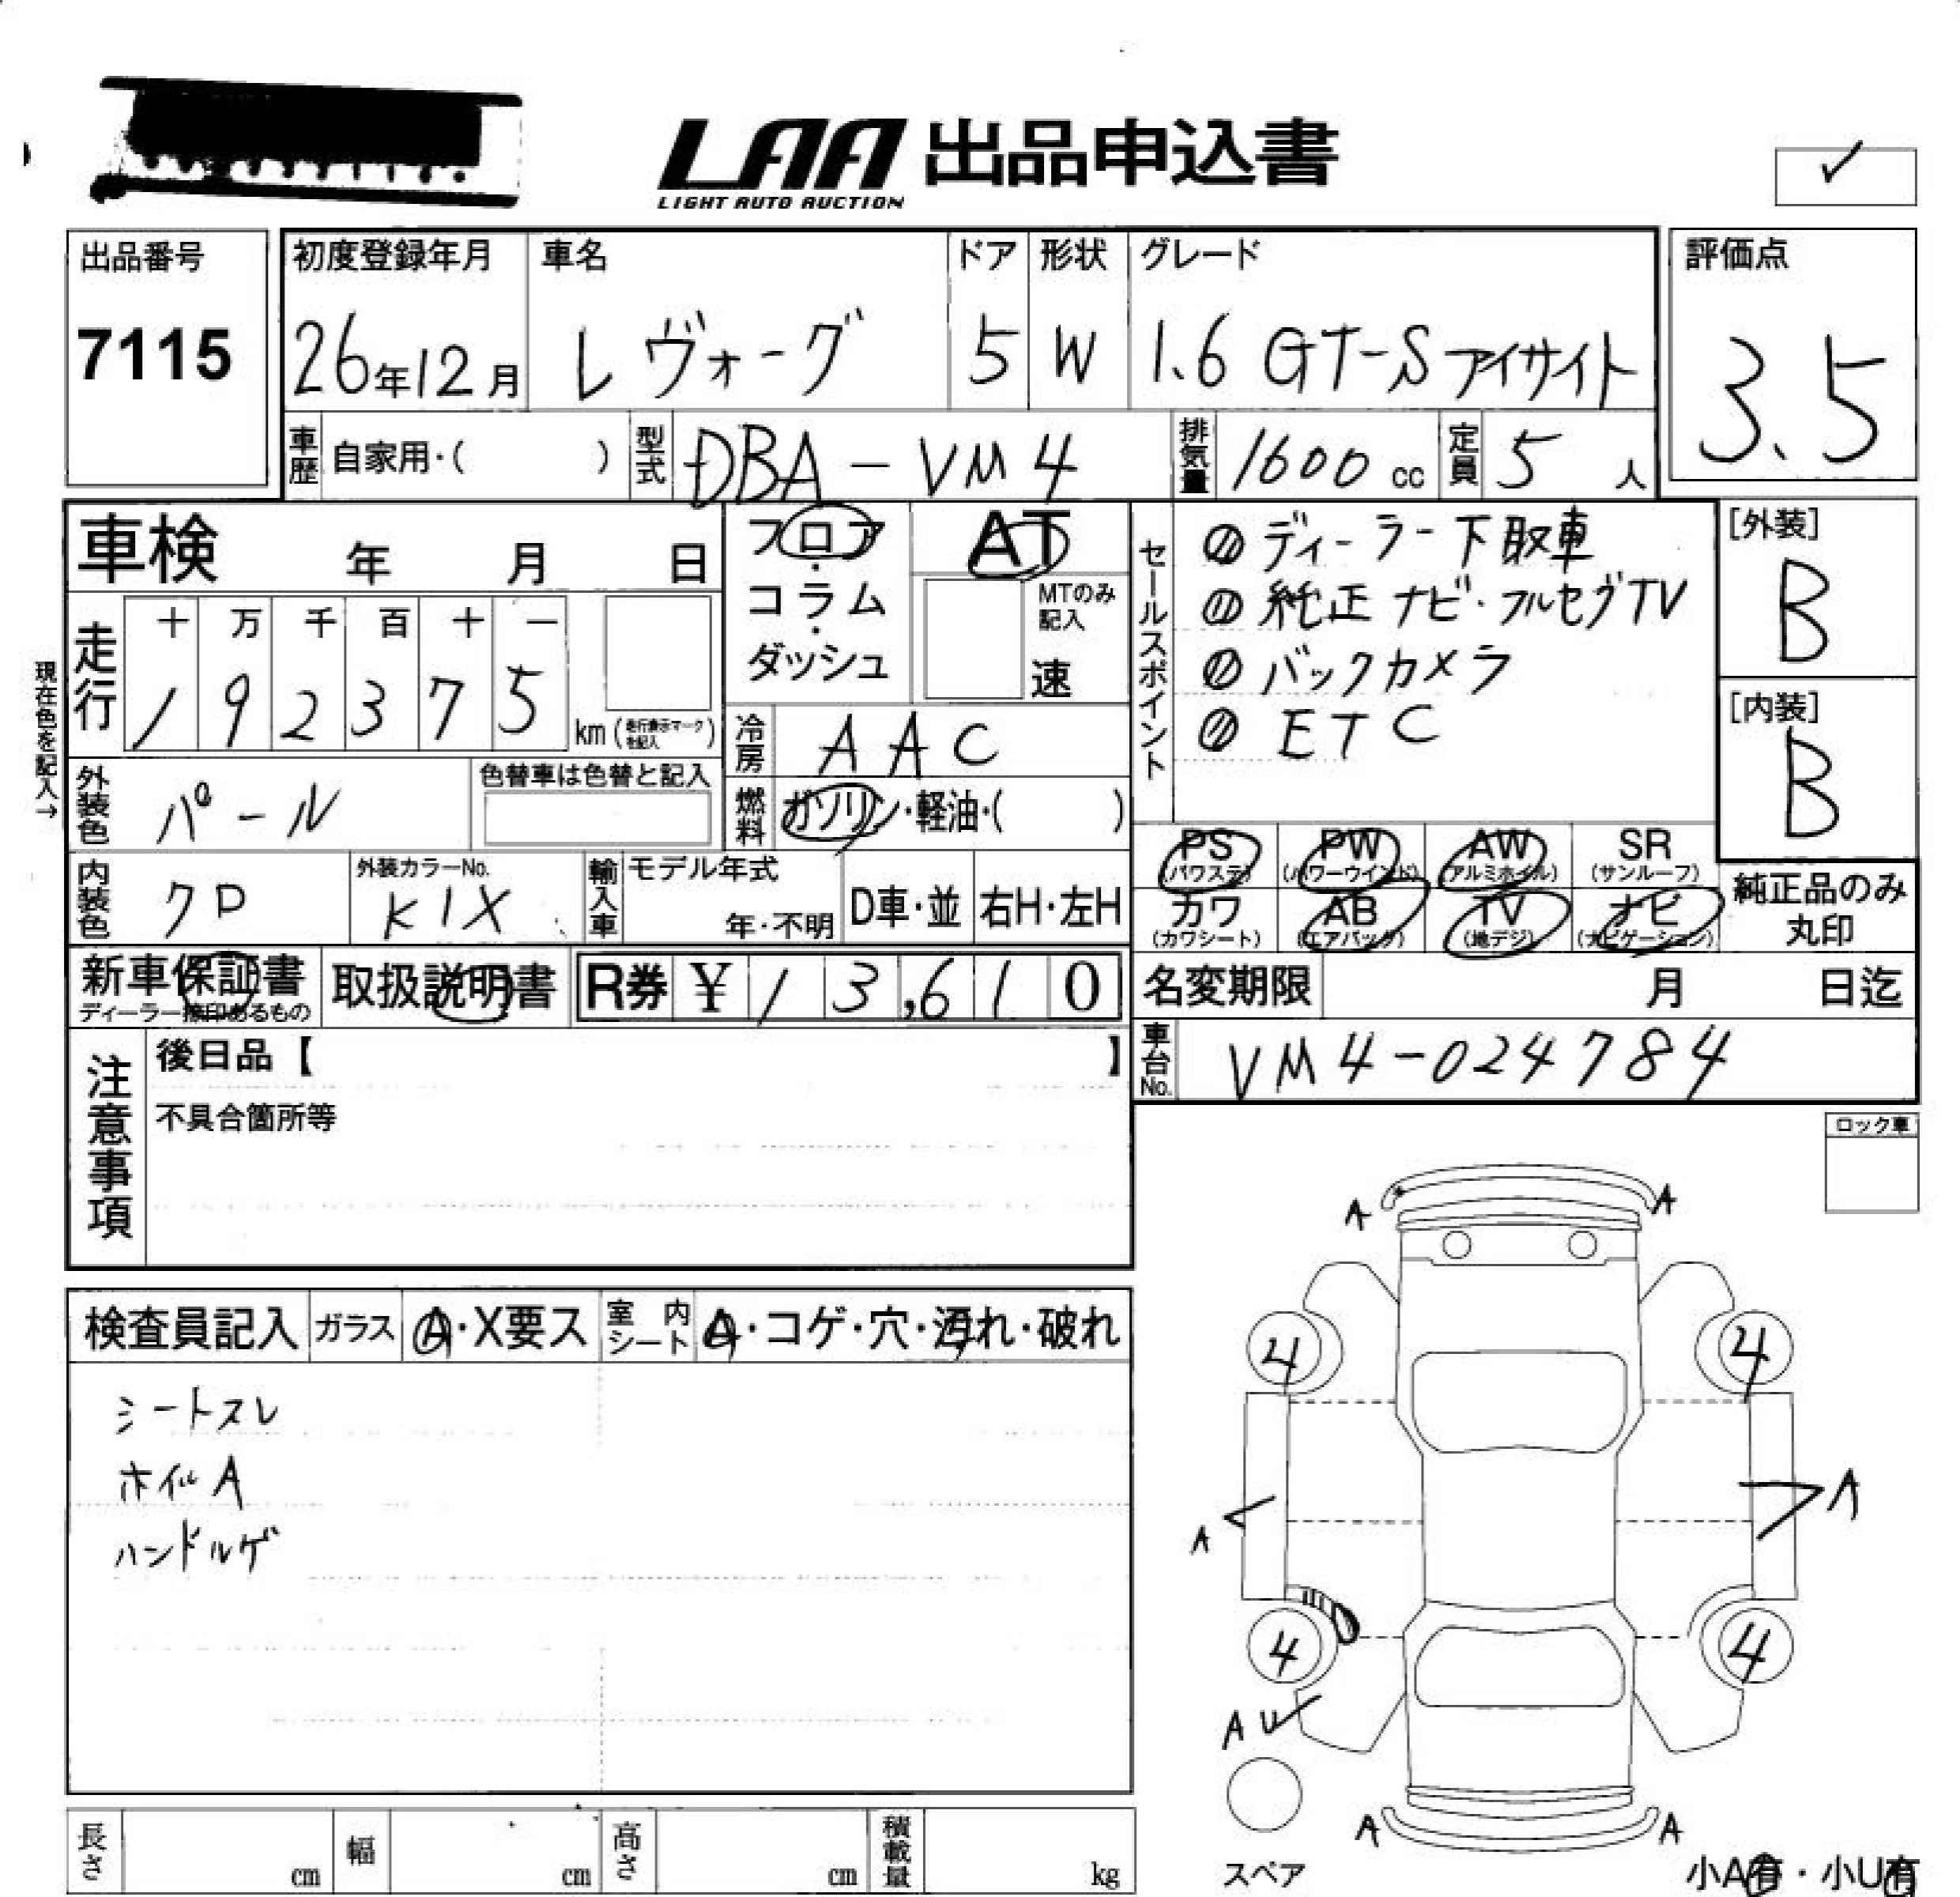 LAA 出品申込書
LIGHT AUTO AUCTION
✓
出品番号
7115
初度登録年月
26年12月
車名
レヴォーグ
ドア
5
形状
W
グレード
1.6 GT-S アイサイト
評価点
3.5
車歴 自家用・( )
型式 DBA-VM4
排気量 1600 cc
定員 5 人
車検 年 月 日
フロア・コラム・ダッシュ
AT
MTのみ記入
速
セールスポイント
ディーラー下取車
純正ナビ・フルセグTV
バックカメラ
ETC
[外装]
B
[内装]
B
現在色を記入→
走行
十 万 千 百 十 一
1 9 2 3 7 5 km (走行表示マークを記入)
冷房 AAC
外装色 パール
色替車は色替と記入
燃料 ガソリン・軽油・( )
内装色 クロ
外装カラーNo.
K1X
輸入車
モデル年式
年・不明
D車・並
右H・左H
PS (パワステ)
PW (パワーウインド)
AW (アルミホイル)
SR (サンルーフ)
カワ (カワシート)
AB (エアバック)
TV (地デジ)
ナビ (ナビゲーション)
純正品のみ
丸印
新車保証書
ディーラー捺印あるもの
取扱説明書
R券 ¥ 1 3,6 1 0
名変期限 月 日迄
車台No. VM4-024784
注意事項
後日品【 】
不具合箇所等
ロック車
検査員記入
ガラス A・X要ス
室内シート A・コゲ・穴・汚れ・破れ
シートスレ
ホイルA
ハンドルゲ
A A
4 4
A A
4 4
A U
A A
スペア
小A有・小U有
長さ cm
幅 cm
高さ cm
積載量 kg